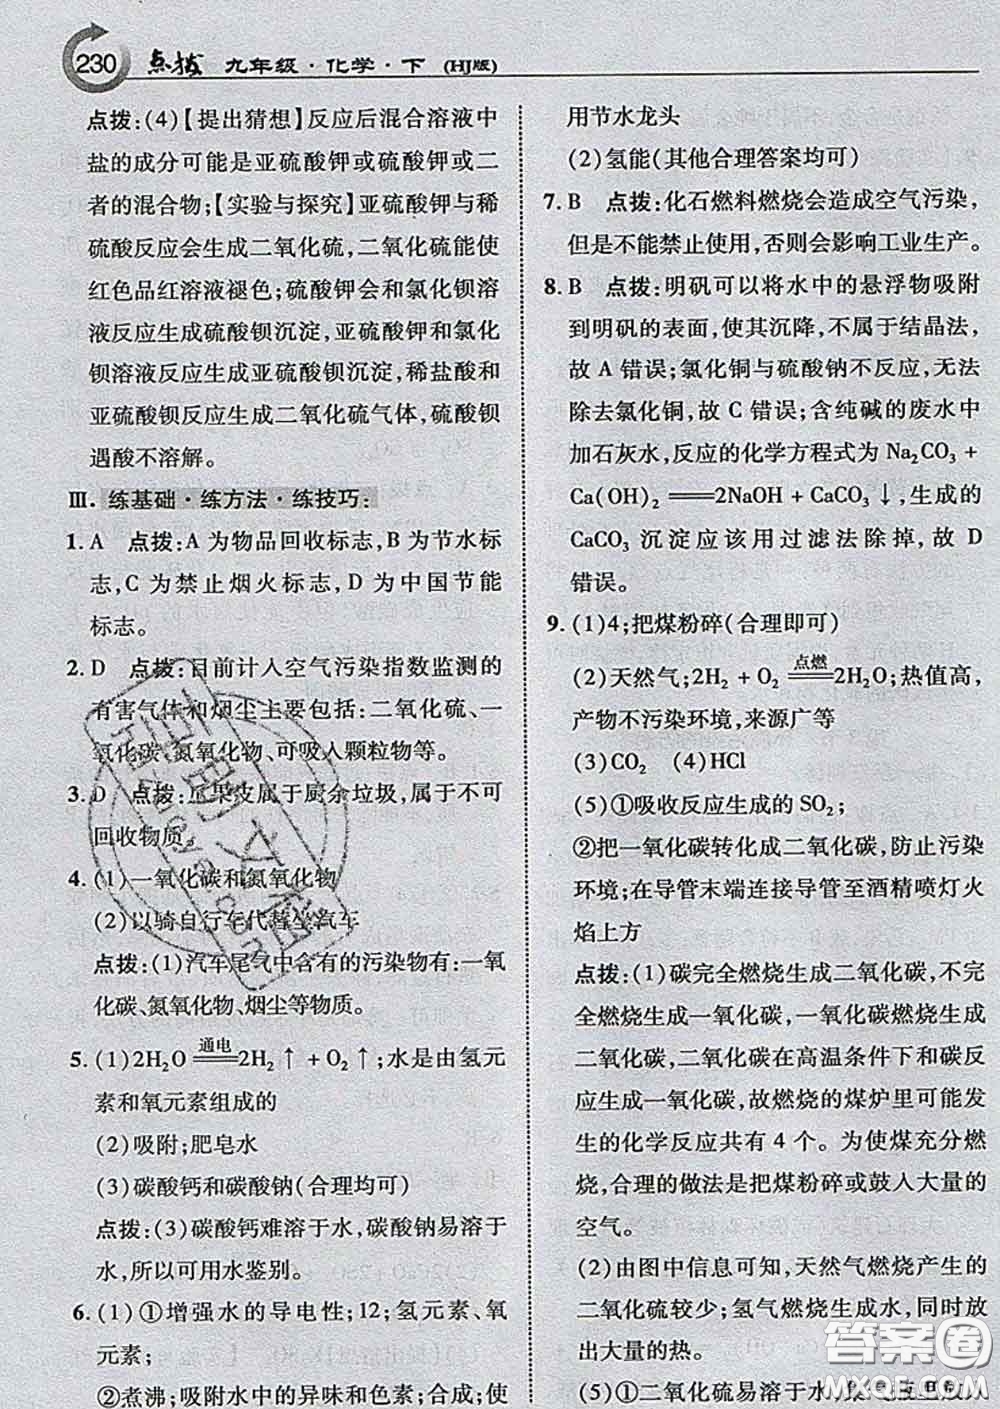 230 点拨 九年级·化学·下 (HJ版)
点拨:(4)【提出猜想】反应后混合溶液中
盐的成分可能是亚硫酸钾或硫酸钾或二
者的混合物;【实验与探究】亚硫酸钾与稀
硫酸反应会生成二氧化硫,二氧化硫能使
红色品红溶液褪色;硫酸钾会和氯化钡溶
液反应生成硫酸钡沉淀,亚硫酸钾和氯化
钡溶液反应生成亚硫酸钡沉淀,稀盐酸和
亚硫酸钡反应生成二氧化硫气体,硫酸钡
遇酸不溶解。
Ⅲ. 练基础·练方法·练技巧:
1. A 点拨:A为物品回收标志,B为节水标
志,C为禁止烟火标志,D为中国节能
标志。
2. D 点拨:目前计入空气污染指数监测的
有害气体和烟尘主要包括:二氧化硫、一
氧化碳、氮氧化物、可吸入颗粒物等。
3. D 点拨:瓜果皮属于厨余垃圾,属于不可
回收物质。
4. (1)一氧化碳和氮氧化物
(2)以骑自行车代替坐汽车
点拨:(1)汽车尾气中含有的污染物有:一氧
化碳、氮氧化物、烟尘等物质。
5. (1)2H₂O 通电══ 2H₂↑+O₂↑;水是由氢元
素和氧元素组成的
(2)吸附;肥皂水
(3)碳酸钙和碳酸钠(合理均可)
点拨:(3)碳酸钙难溶于水,碳酸钠易溶于
水,所以可用水鉴别。
6. (1)①增强水的导电性;12;氢元素、氧
元素;
②煮沸;吸附水中的异味和色素;合成;使
用节水龙头
(2)氢能(其他合理答案均可)
7. B 点拨:化石燃料燃烧会造成空气污染,
但是不能禁止使用,否则会影响工业生产。
8. B 点拨:明矾可以将水中的悬浮物吸附
到明矾的表面,使其沉降,不属于结晶法,
故A错误;氯化铜与硫酸钠不反应,无法
除去氯化铜,故C错误;含纯碱的废水中
加石灰水,反应的化学方程式为Na₂CO₃+
Ca(OH)₂══2NaOH+CaCO₃↓,生成的
CaCO₃沉淀应该用过滤法除掉,故D
错误。
9. (1)4;把煤粉碎(合理即可)
(2)天然气;2H₂+O₂ 点燃══ 2H₂O;热值高,
产物不污染环境,来源广等
(3)CO₂ (4)HCl
(5)①吸收反应生成的SO₂;
②把一氧化碳转化成二氧化碳,防止污染
环境;在导管末端连接导管至酒精喷灯火
焰上方
点拨:(1)碳完全燃烧生成二氧化碳,不完
全燃烧生成一氧化碳,一氧化碳燃烧生成
二氧化碳,二氧化碳在高温条件下和碳反
应生成一氧化碳,故燃烧的煤炉里可能发
生的化学反应共有4个。为使煤充分燃
烧,合理的做法是把煤粉碎或鼓入大量的
空气。
(2)由图中信息可知,天然气燃烧产生的
二氧化硫较少;氢气燃烧生成水,同时放
出大量的热。
(5)①二氧化硫易溶于水,
答案圈